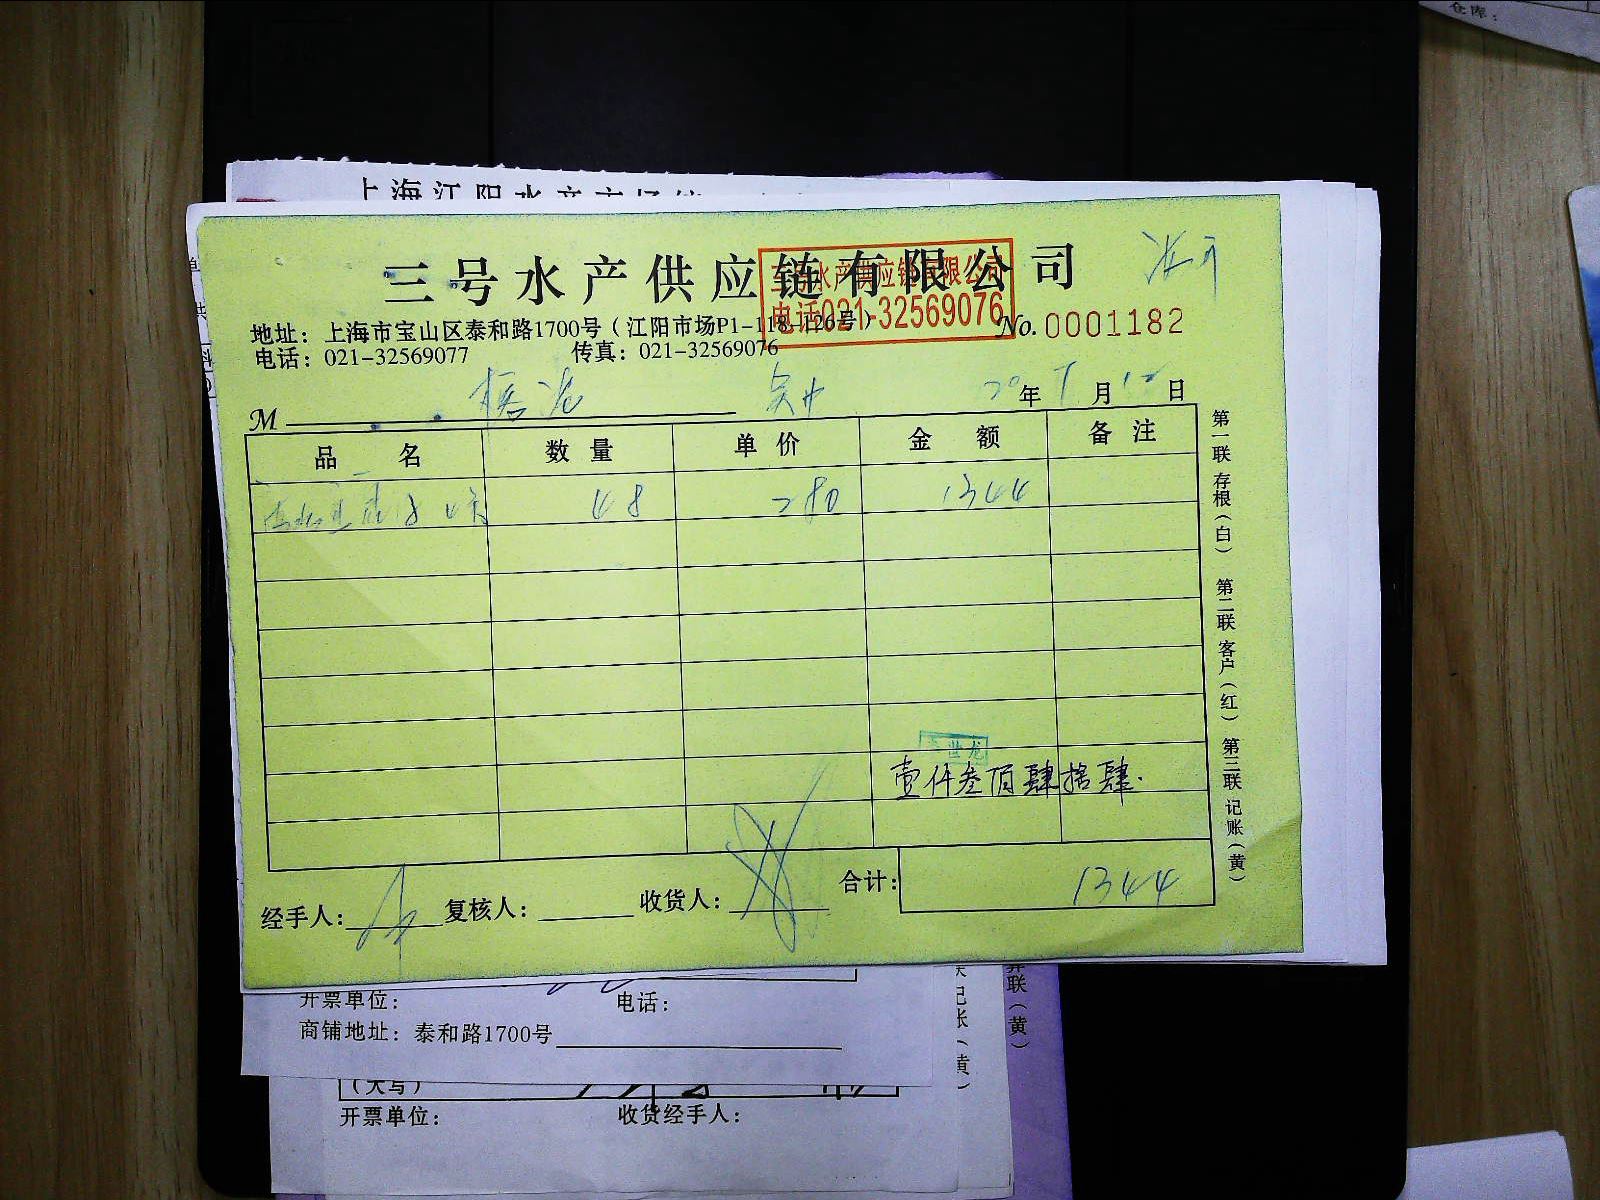 仓库：
三号水产供应链有限公司
三号水产供应链有限公司
电话021-32569076
地址：上海市宝山区泰和路1700号（江阳市场P1-118、126号）
No.0001182
电话：021-32569077 传真：021-32569076
M
20年 月 日
品名 数量 单价 金额 备注
48 280 1344
壹仟叁佰肆拾肆.
合计： 1344
经手人： 复核人： 收货人：
第一联 存根（白） 第二联 客户（红） 第三联 记账（黄）
开票单位： 电话：
商铺地址：泰和路1700号
（大写）
开票单位： 收货经手人：